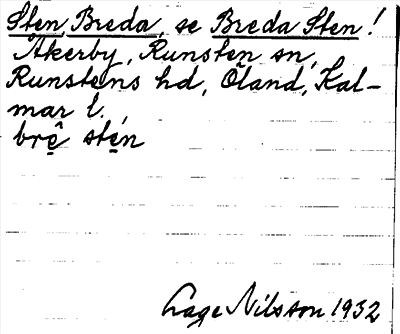 Sten, Breda, se Breda Sten!
Åkerby, Runsten sn,
Runstens hd, Öland, Kal-
mar l.
brê̱ ste̱n
Lage Nilsson 1932